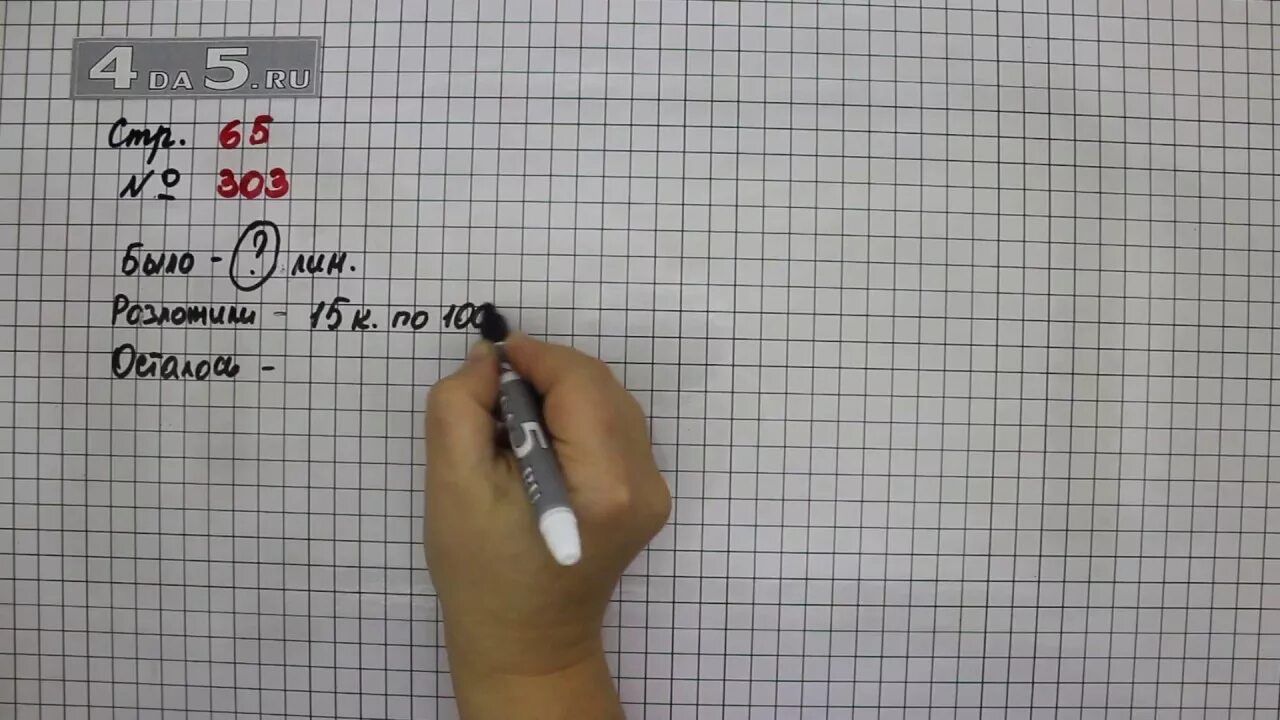 4 DA 5.RU
Стр. 65
№ 303
Было - ? лин.
Розложили - 15 к. по 100
Осталось -
5